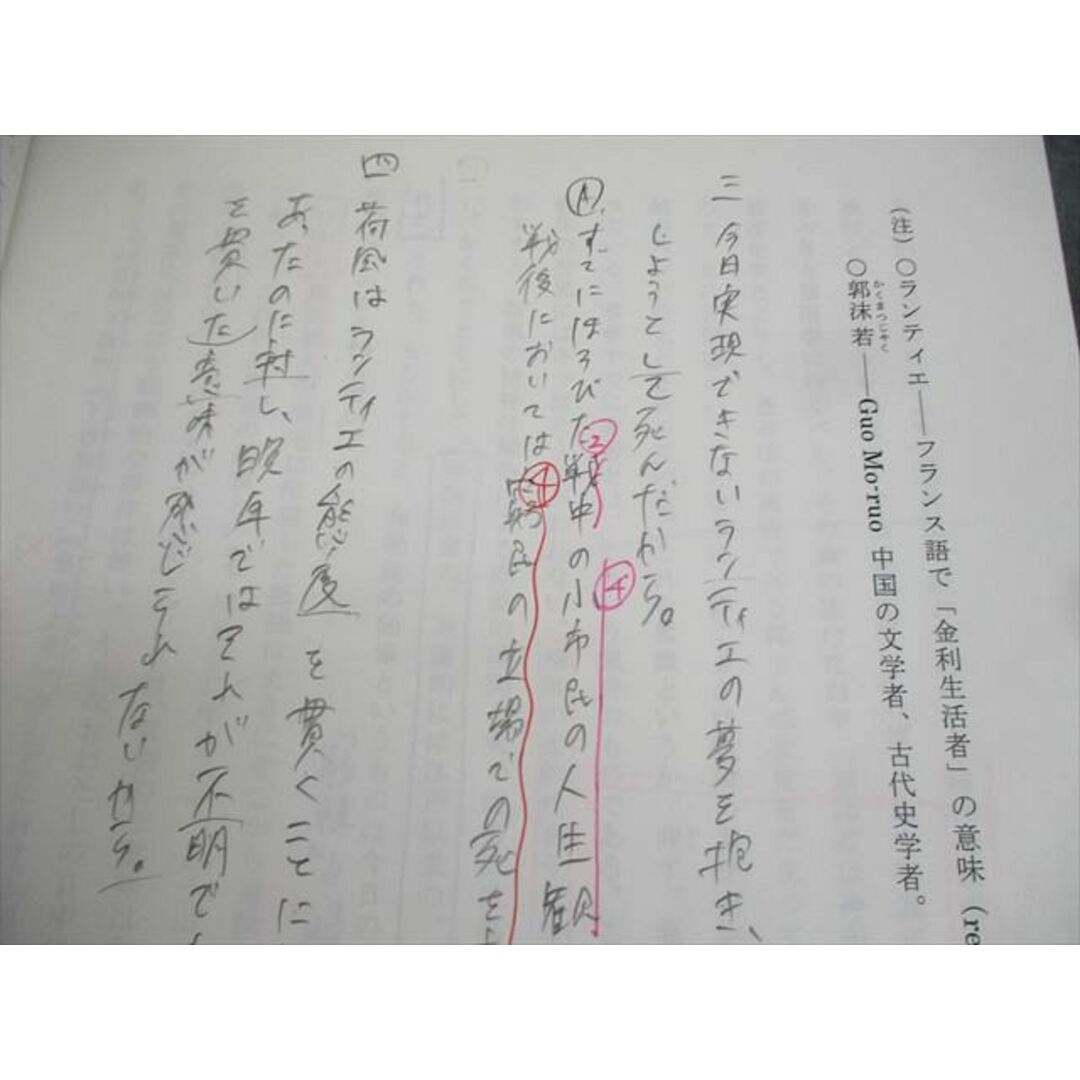 (注)○ランティエ――フランス語で「金利生活者」の意味(re
○郭沫若――Guo Mo-ruo 中国の文学者、古代史学者。
かくまつじやく
三 今日実現できないランティエの夢を抱き、
しようとして死んだから。
Ⓐ すでにほろびた戦中の小市民の人生観
②
④
戦後においては窮民の立場での死を
④
四 荷風はランティエの態度を貫くことに
あったのに対し、晩年ではそれが不明で
を貫いた意味が感じられ
ないから。